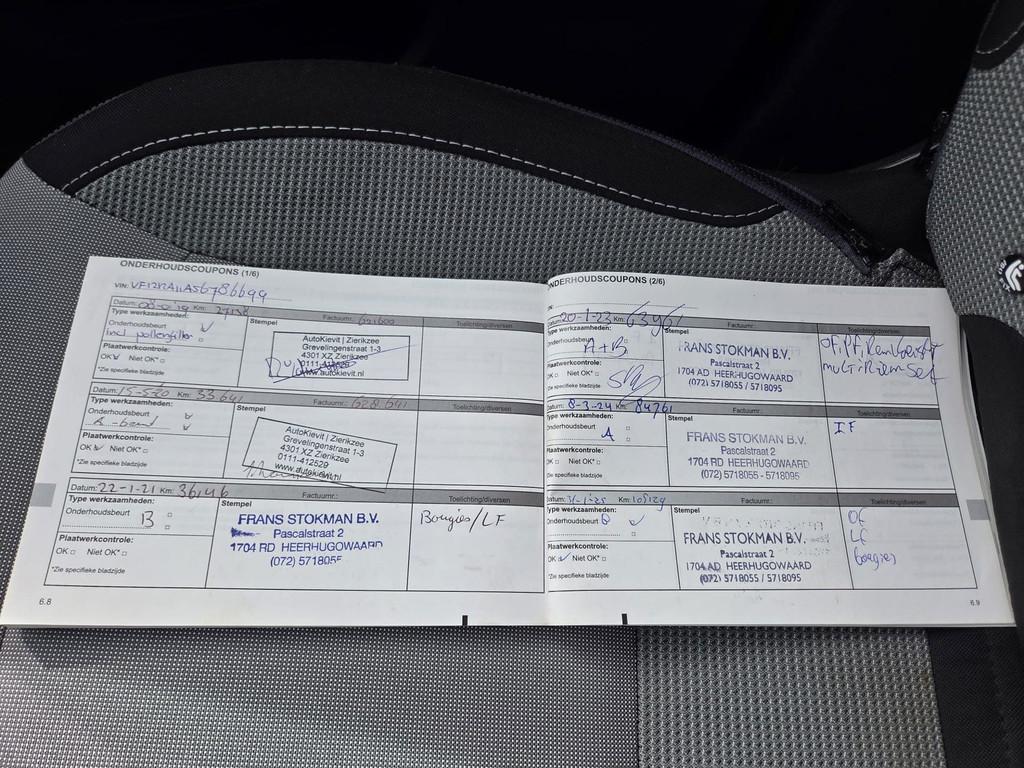 ONDERHOUDSCOUPONS (1/6)
VIN:
Datum: Km:
Type werkzaamheden:
Stempel
Factuurnr.:
Toelichting/diversen
Onderhoudsbeurt
incl pollenfilter
Plaatwerkcontrole:
OK Niet OK*
*Zie specifieke bladzijde
AutoKievit | Zierikzee
Grevelingenstraat 1-3
4301 XZ Zierikzee
0111-412529
www.autokievit.nl
Datum: Km: 33.641
Type werkzaamheden:
Stempel
Factuurnr.:
Toelichting/diversen
Onderhoudsbeurt
Plaatwerkcontrole:
OK Niet OK*
*Zie specifieke bladzijde
AutoKievit | Zierikzee
Grevelingenstraat 1-3
4301 XZ Zierikzee
0111-412529
www.autokievit.nl
Datum: 22-1-21 Km: 36146
Type werkzaamheden:
Stempel
Factuurnr.:
Toelichting/diversen
Onderhoudsbeurt B
Plaatwerkcontrole:
OK Niet OK*
*Zie specifieke bladzijde
FRANS STOKMAN B.V.
Pascalstraat 2
1704 RD HEERHUGOWAARD
(072) 571805
Bougies/LF
6.8
ONDERHOUDSCOUPONS (2/6)
Datum: 20-1-23 Km:
Type werkzaamheden:
Stempel
Factuurnr.:
Toelichting/diversen
Onderhoudsbeurt
A+B
Plaatwerkcontrole:
OK Niet OK*
*Zie specifieke bladzijde
FRANS STOKMAN B.V.
Pascalstraat 2
1704 AD HEERHUGOWAARD
(072) 5718055 / 5718095
OF, PF, Remvloeistof
multiriem set
Datum: 8-3-24 Km: 84761
Type werkzaamheden:
Stempel
Factuurnr.:
Toelichting/diversen
Onderhoudsbeurt
A
Plaatwerkcontrole:
OK Niet OK*
*Zie specifieke bladzijde
FRANS STOKMAN B.V.
Pascalstraat 2
1704 RD HEERHUGOWAARD
(072) 5718055 - 5718095
IF
Datum: 31-1-25 Km: 105129
Type werkzaamheden:
Stempel
Factuurnr.:
Toelichting/diversen
Onderhoudsbeurt B
Plaatwerkcontrole:
OK Niet OK*
*Zie specifieke bladzijde
FRANS STOKMAN B.V.
Pascalstraat 2
1704 AD HEERHUGOWAARD
(072) 5718055 / 5718095
OF
LF
Bougies
6.9